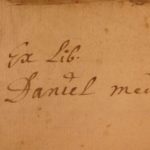 Ex Lib.
Daniel med